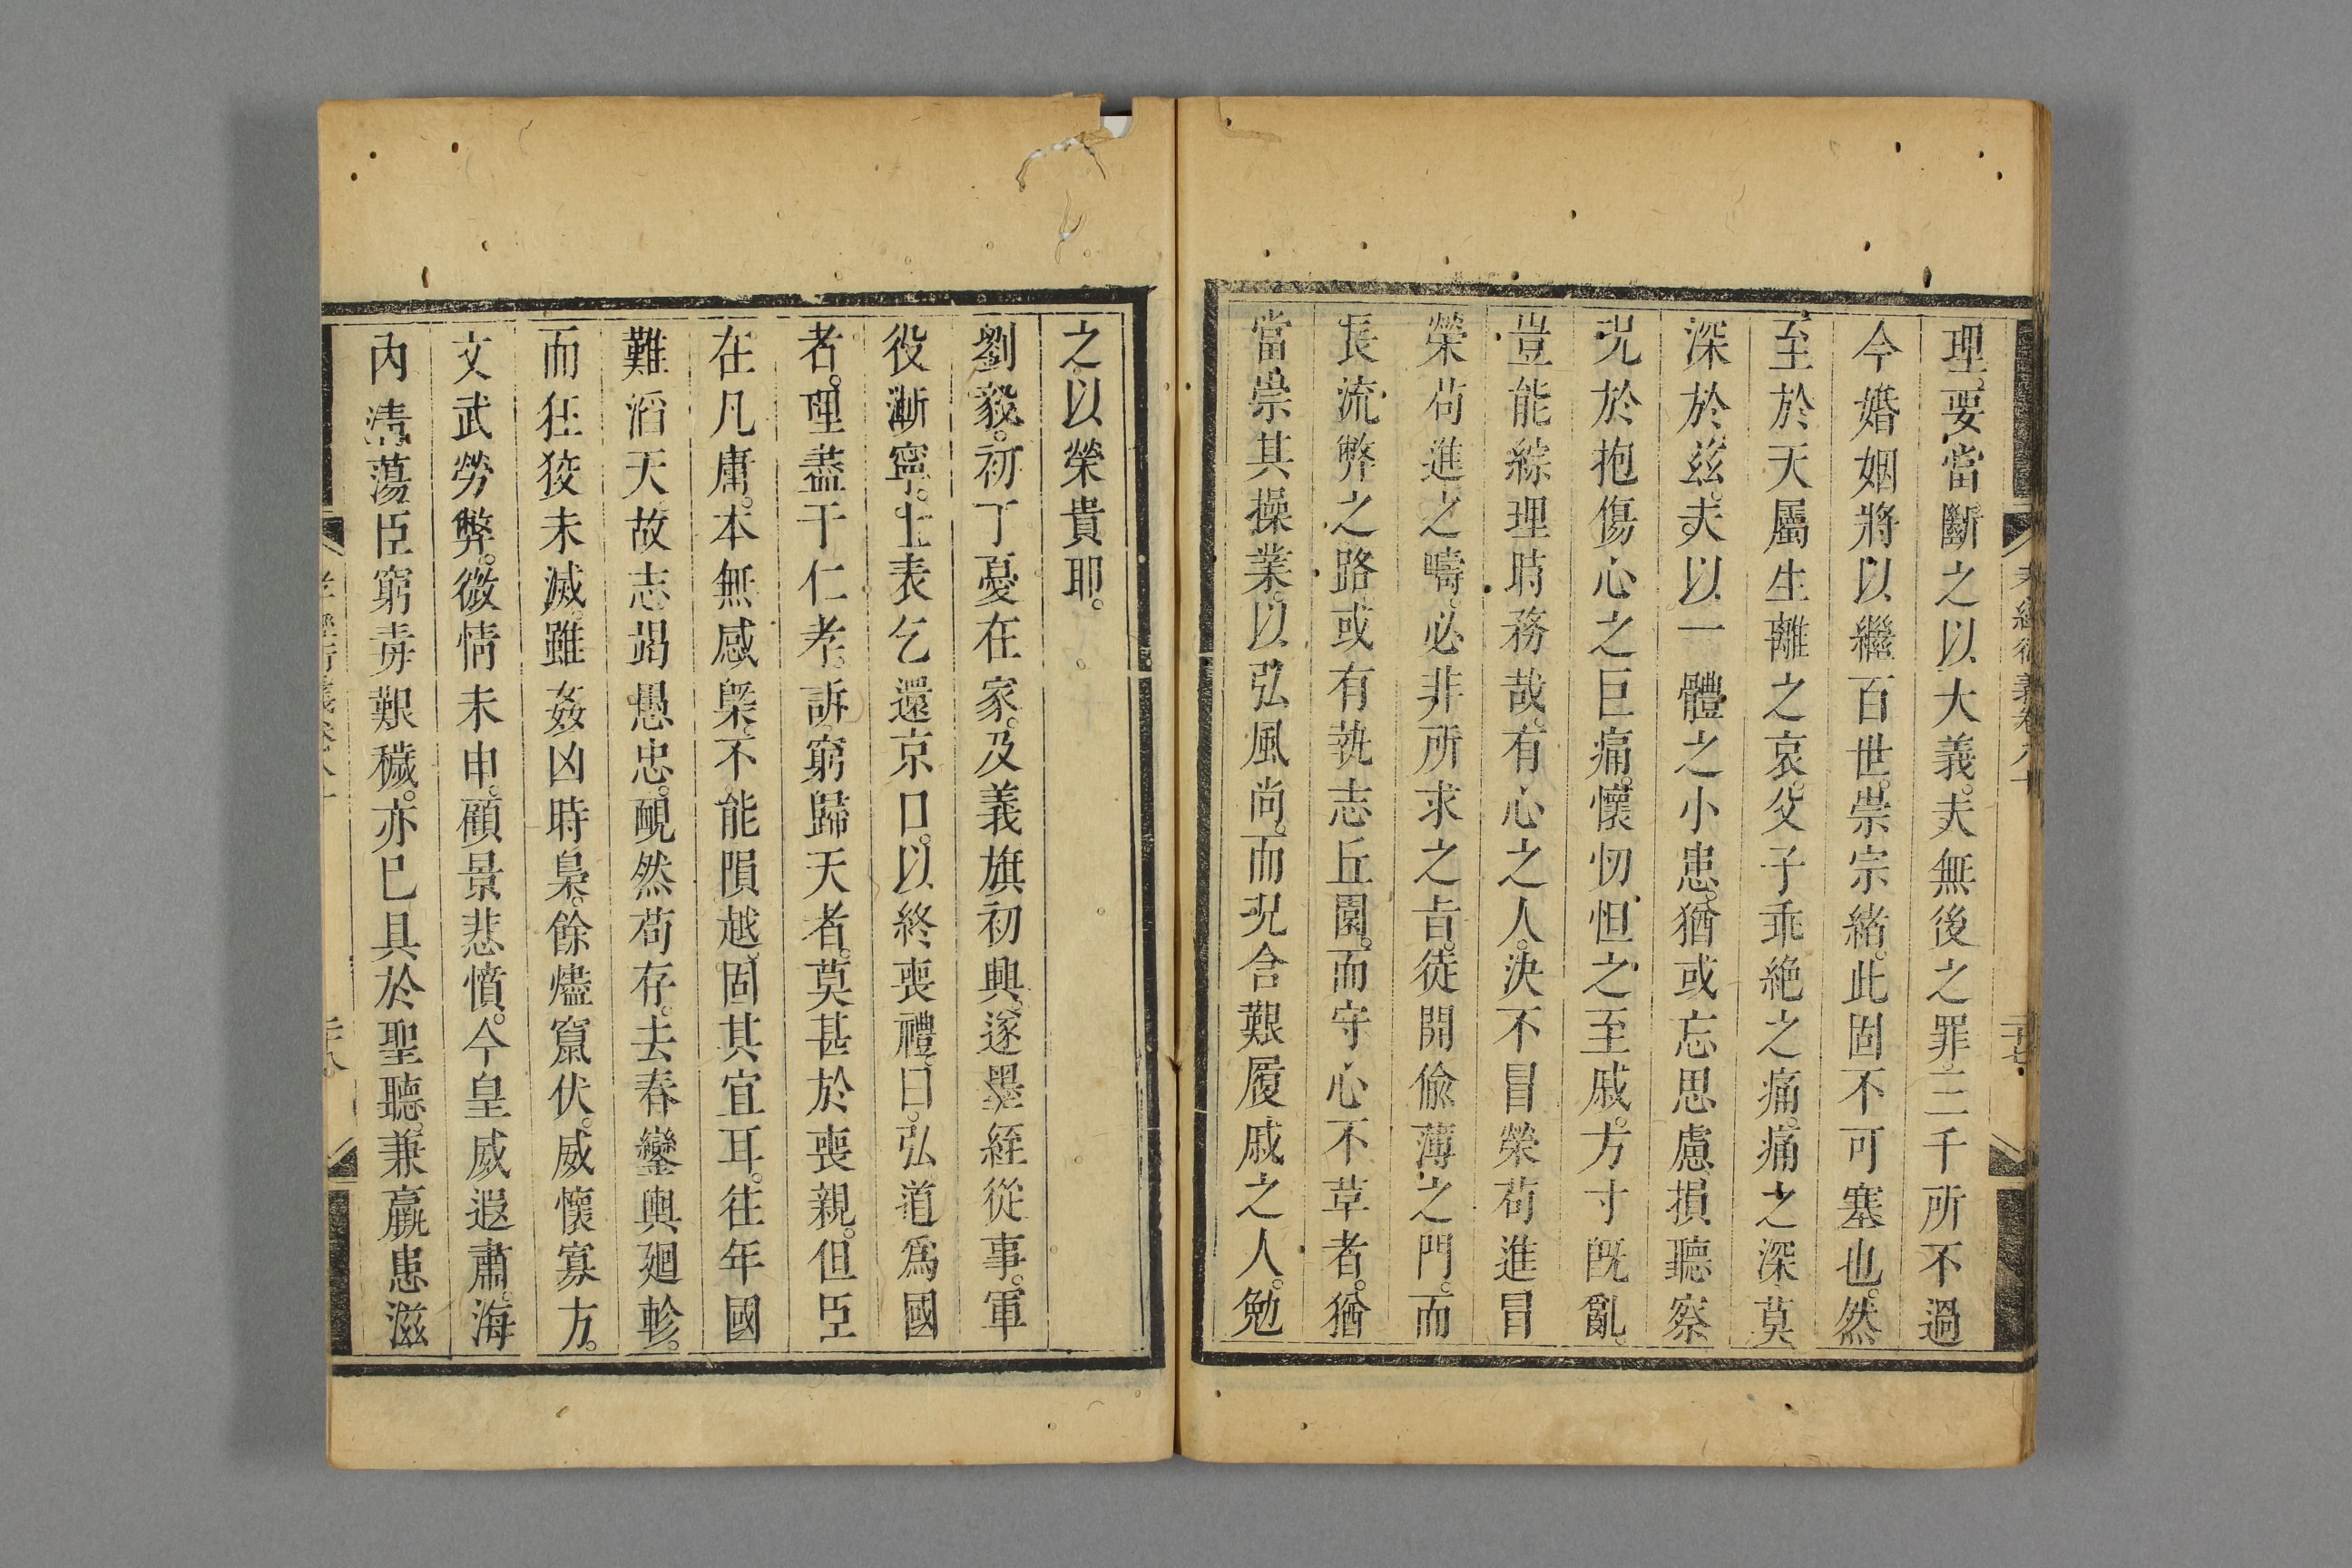 理要當斷之以大義。夫無後之罪。三千所不過
今婚姻將以繼百世。崇宗緒。此固不可塞也。然
至於天屬生離之哀。父子乖絶之痛。痛之深莫
深於兹。夫以一體之小患。猶或忘思慮。損聽察
况於抱傷心之巨痛。懷忉怛之至戚。方寸旣亂。
豈能綜理時務哉。有心之人。決不冒榮苟進冒
榮苟進之疇。必非所求之旨。徒開偷薄之門。而
長流弊之路或有執志丘園。而守心不草者。猶
當崇其操業。以弘風尚。而况含艱履戚之人。勉
之以榮貴耶。
劉毅。初丁憂在家。及義旗初興。遂墨絰從事。軍
役漸寧。上表乞還京口。以終喪禮。曰。弘道爲國
者。理盡于仁孝。訴窮歸天者。莫甚於喪親。但臣
在凡庸。本無感槩。不能隕越。固其宜耳。往年國
難滔天。故志竭愚忠。靦然苟存。去春鑾輿廻軫。
而狂狡未滅。雖姦凶時梟。餘燼竄伏。威懷寡方。
文武勞弊。微情未申。顧景悲憤。今皇威遐肅。海
内清蕩。臣窮毒艱穢。亦已具於聖聽。兼羸患滋
孝經衍義卷八十
二十七